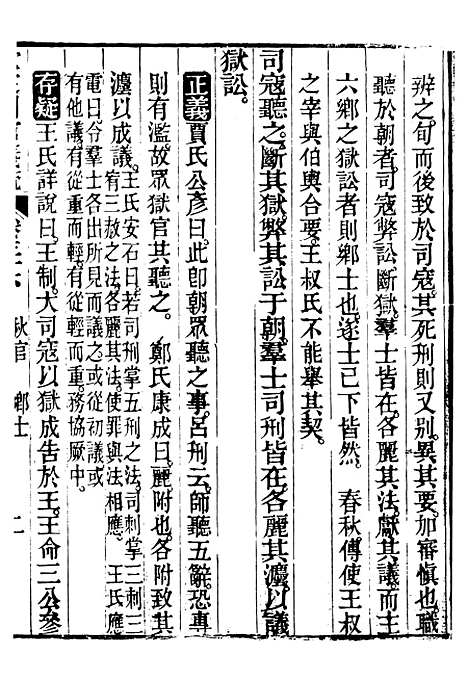 辨之旬而後致於司寇其死刑則又别異其要加審愼也職
聽於朝者司寇弊訟斷獄羣士皆在各麗其法獻其議而主
六鄉之獄訟者則鄉士也遂士已下皆然　春秋傳使王叔
之宰與伯輿合要王叔氏不能舉其契
司寇聽之斷其獄弊其訟于朝羣士司刑皆在各麗其灋以議
獄訟
正義賈氏公彥曰此卽朝眾聽之事呂刑云師聽五辭恐專
則有濫故眾獄官共聽之　鄭氏康成曰麗附也各附致其
灋以成議王氏安石曰若司刑掌五刑之法司刺掌三刺三
宥三赦之法各麗其法使罪與法相應　王氏應
電曰令羣士各出所見而議之或從初議或
有他議有從重而輕有從輕而重務協厥中
存疑王氏詳說曰王制大司寇以獄成告於王王命三公參
秋官　鄉士　二